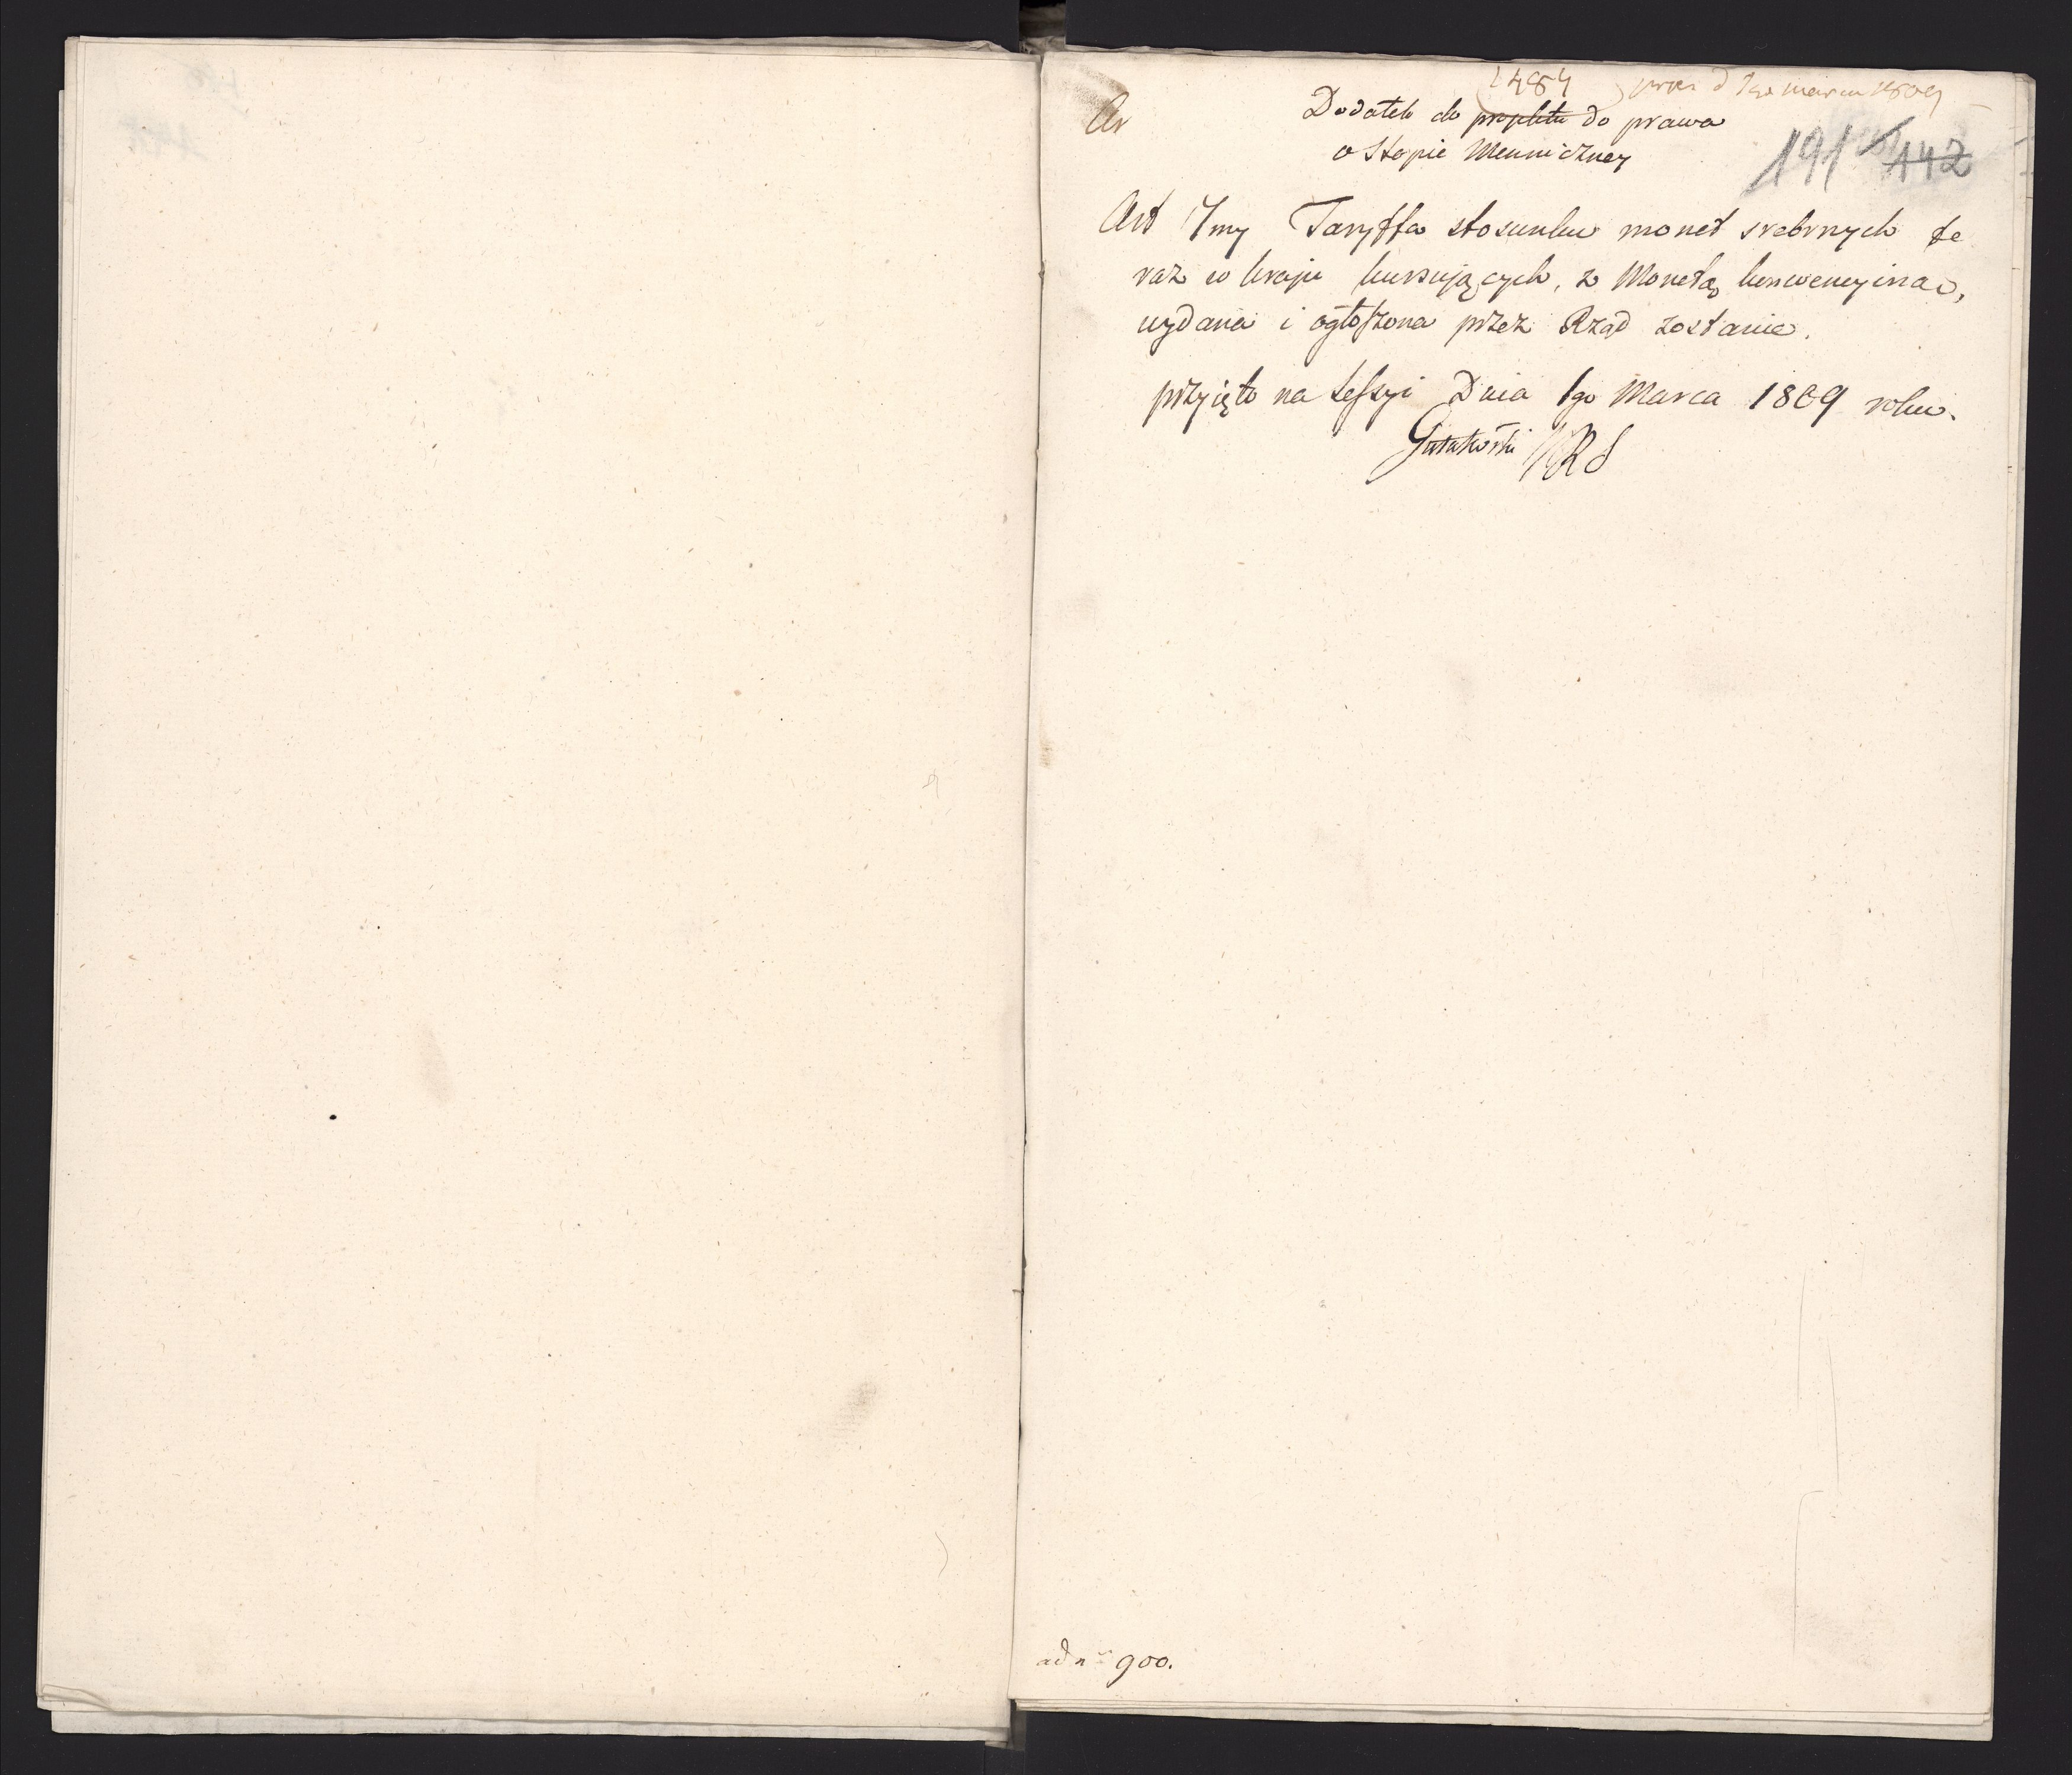 1484 pres d 1go marca 1809
Dodatek do projektu do prawa
o Stopie Menniczney
191 142
Art 7my Taryffa stosunku monet srebrnych te
raz w kraju kursujących, z Monetą konwencyiną,
wydana i ogłoszona przez Rząd zostanie.
przyięto na Sessyi Dnia 1go Marca 1809 roku.
Gutakowski PRS
ad nr 900.